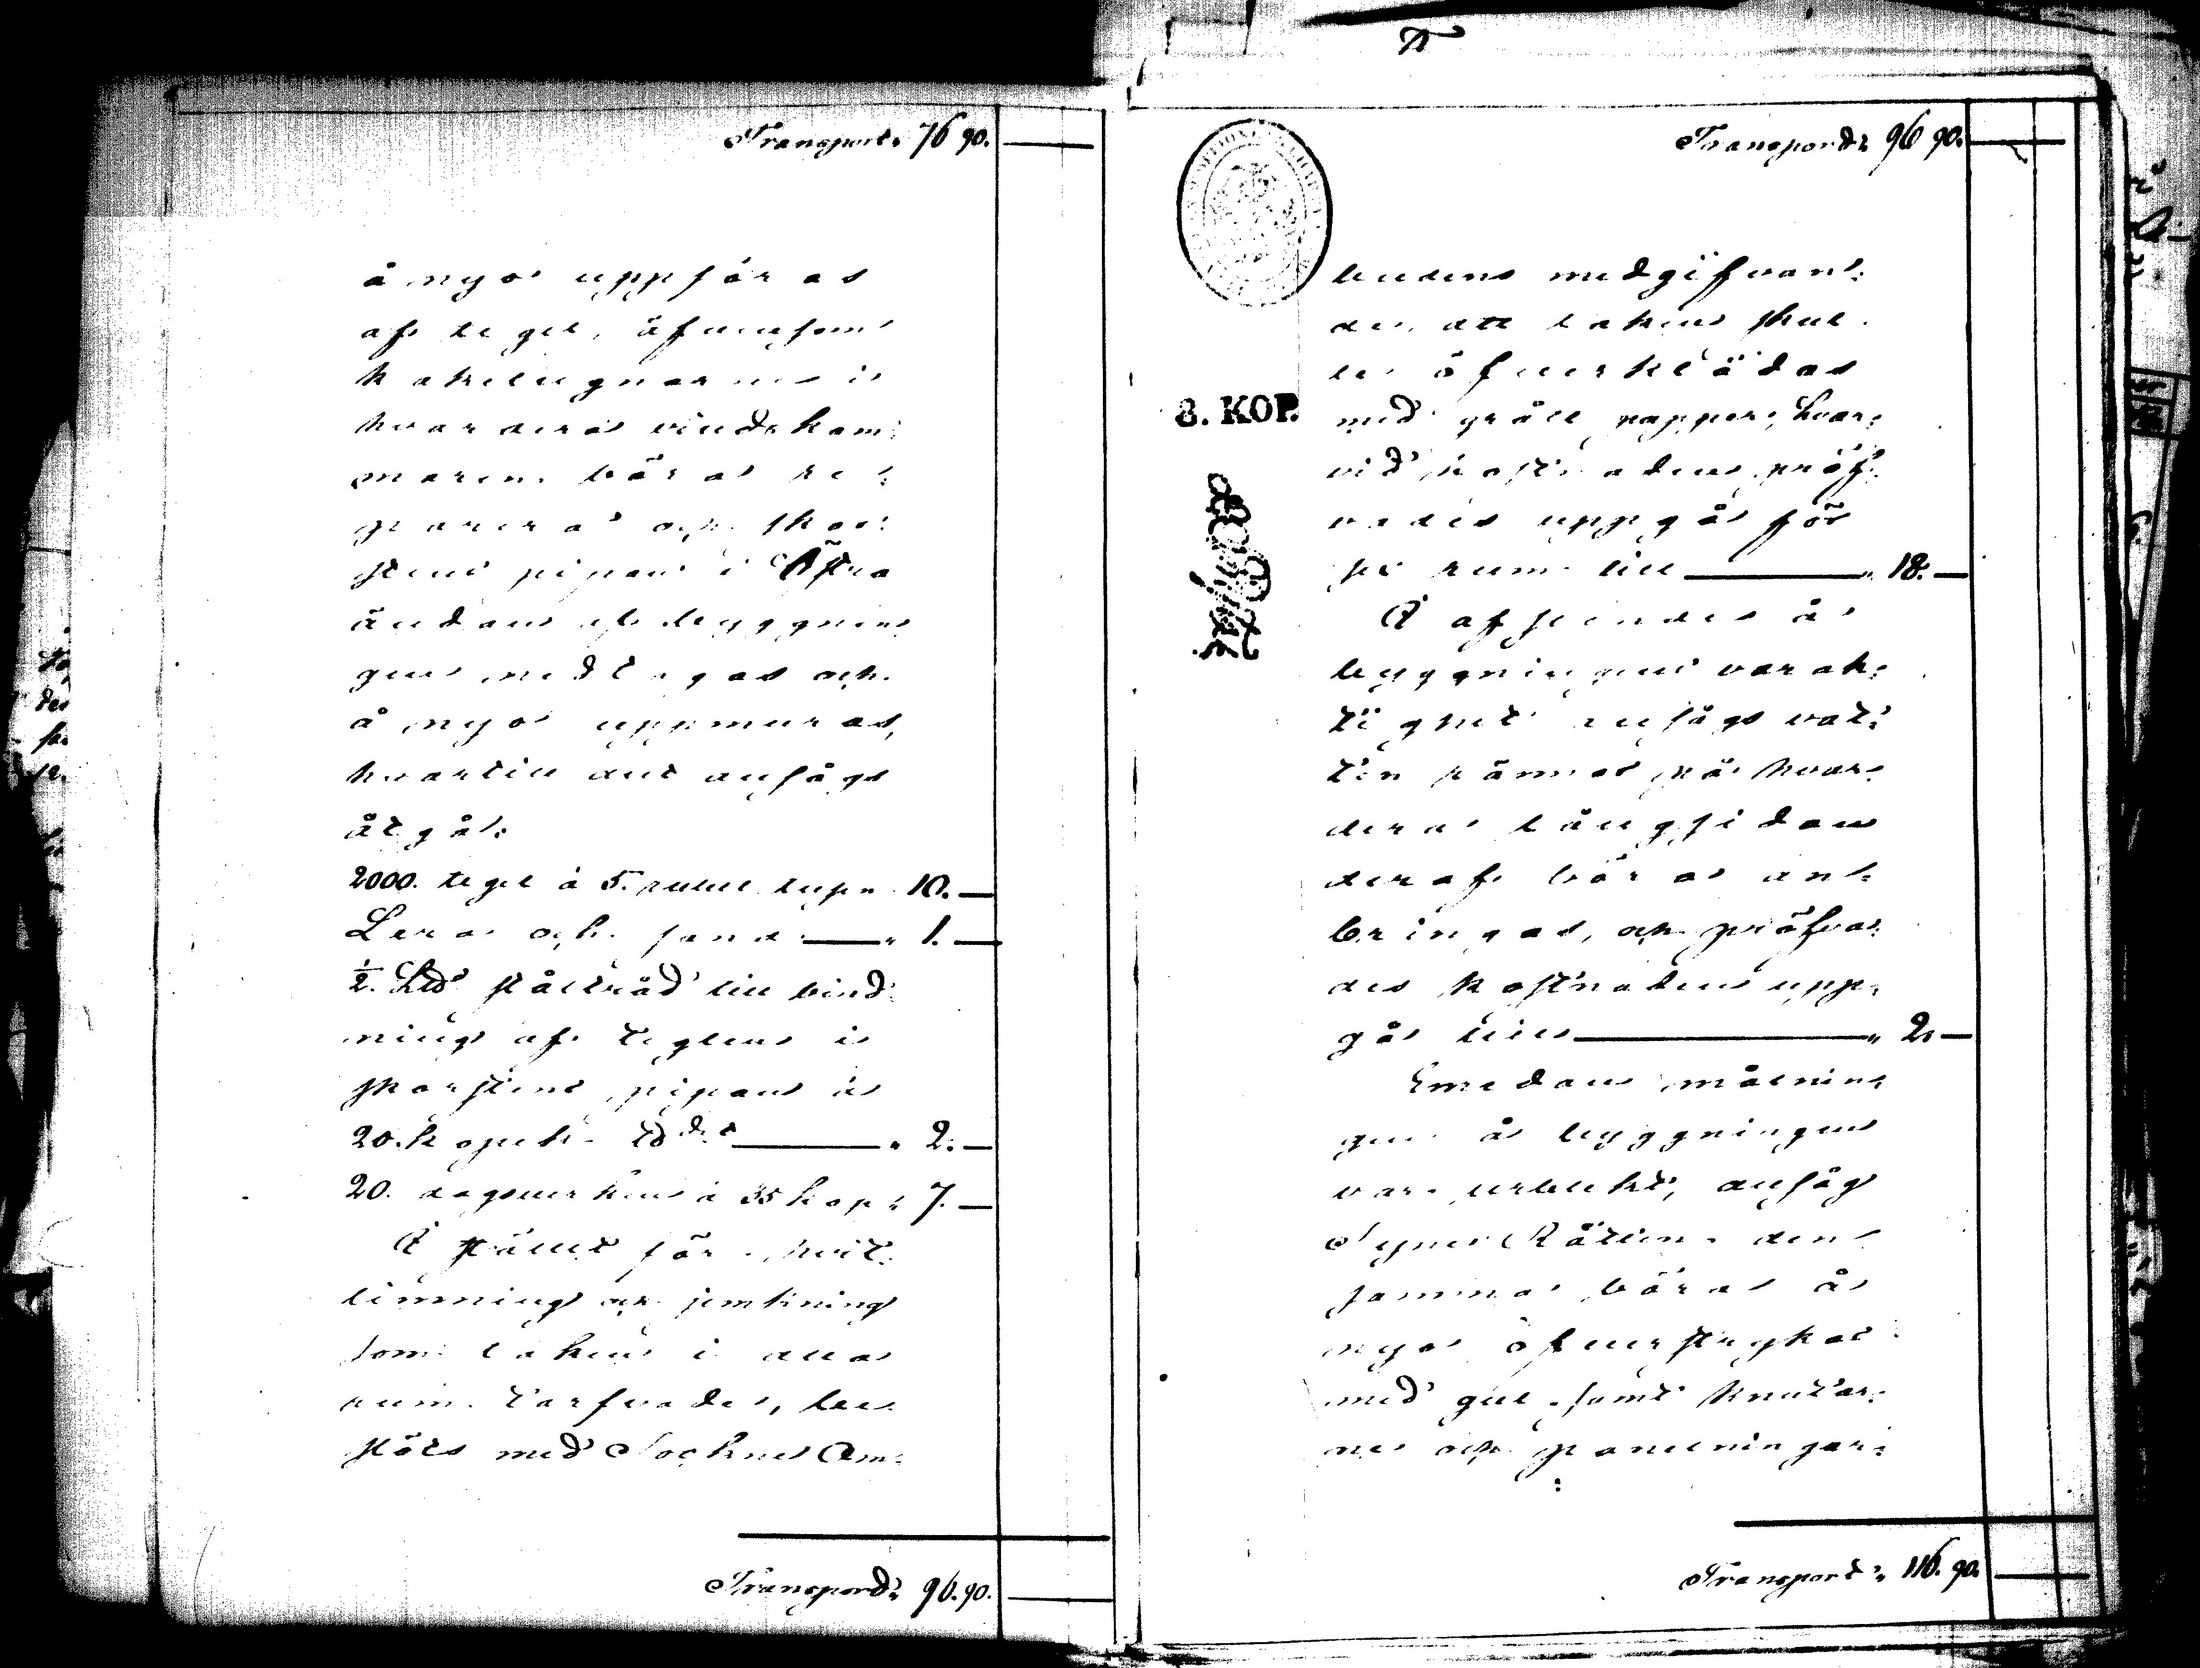 Transport 76 90.
å nyo uppföras
af tegel, äfvensom
kakelugnarne i
hvardera vindskam=
maren böra re=
pareras och skor=
stens pipan i Östra
ändan af byggnin=
gen nedtagas och
å nyo uppmuras,
hvartill det ansågs
åtgå:
2000. tegel à 5. rubel tusen 10. —
Lera och sand — " 1. —
½. L℔ ståltråd till bind=
ning af teglen i
skorstens pipan à
20. kopek. — " 2. —
20. dagsverken à 35 kop " 7. —
I stället för hvit=
limning och jemkning
som taken i alla
rum tarfvade, be=
slöts med Sockne Om=
Transport " 96. 90.
Transport " 96 90.
budens medgifvan=
de, att taken skul=
le öfverklädas
med grått papper, hvar=
vid kostnaden pröf=
vades uppgå för
sex rum till — " 18. —
I afseende å
byggningens varak=
tighet ansågs vat=
ten rännor på hvar=
dera långsidan
deraf böra an=
bringas, och pröfva=
des kostnaden upp=
gå till — " 2. —
8. KOP.
Emedan målnin=
gen å byggningen
var urblekt, ansåg
Syne Rätten den=
samma böra å
nyo öfverstrykas
med gul samt knutar=
ne och panelningar=
Transport " 116. 90.